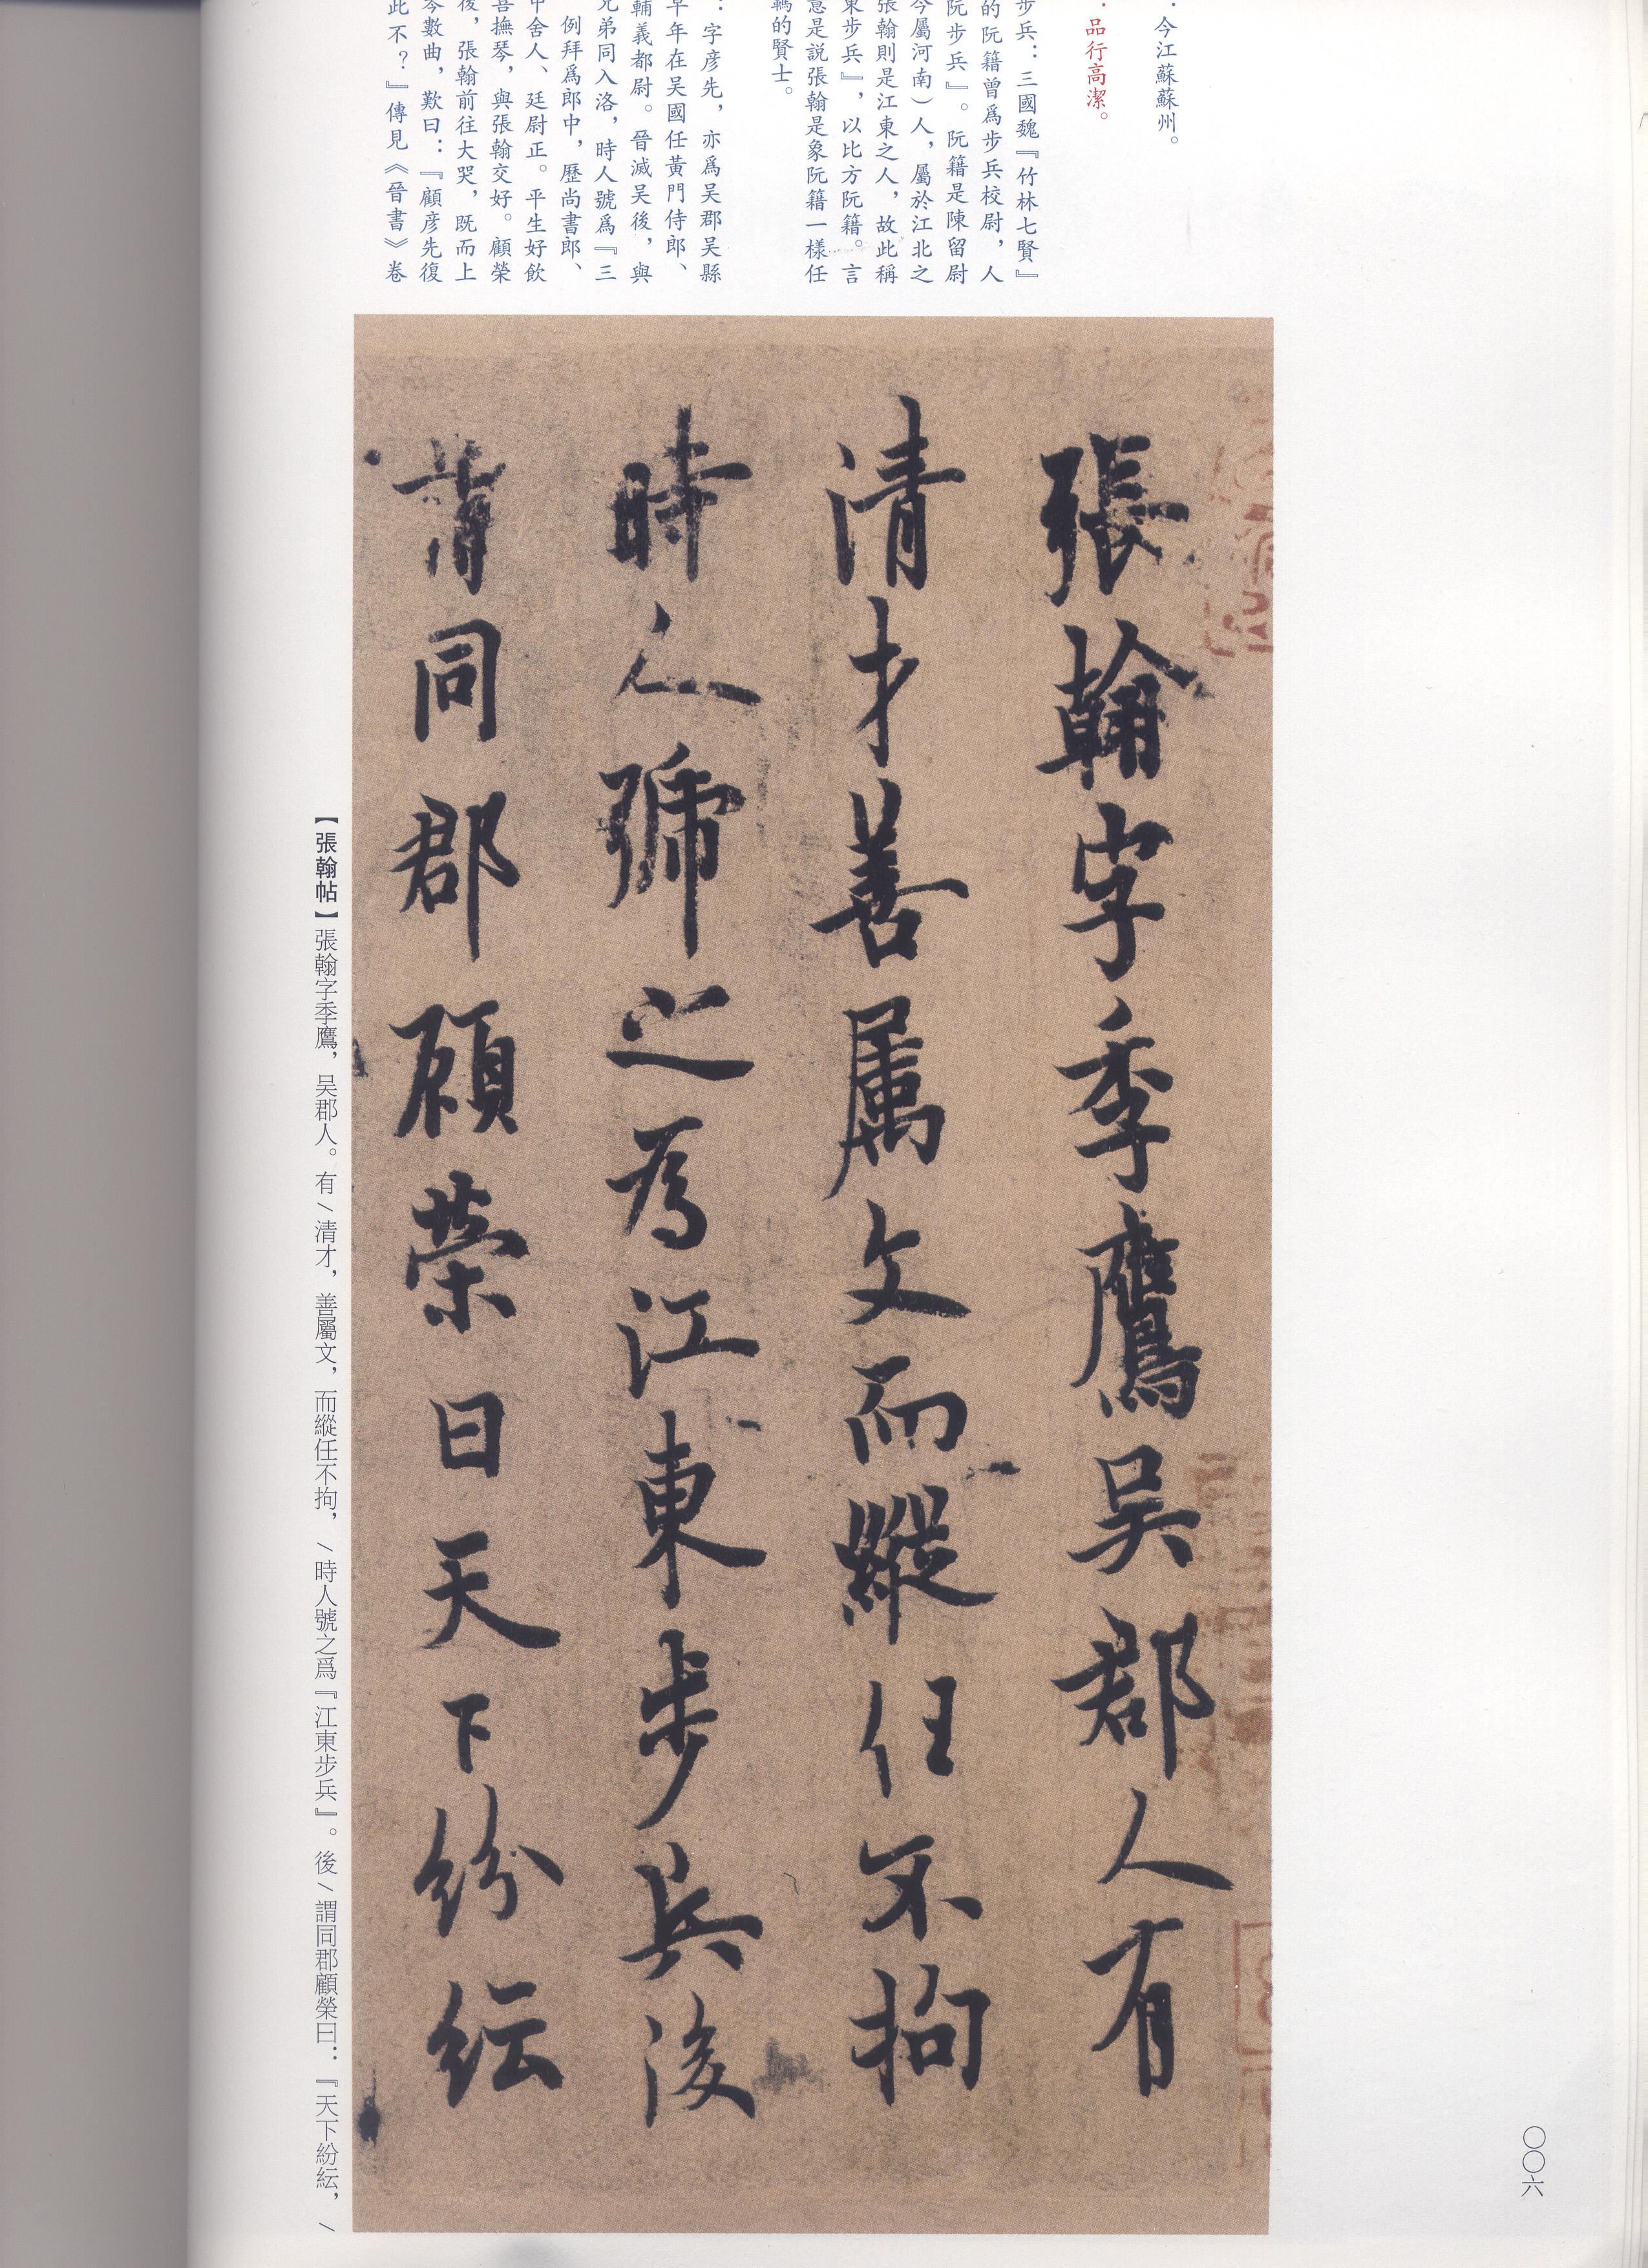 ：今江蘇蘇州。
：品行高潔。
步兵：三國魏『竹林七賢』
的阮籍曾爲步兵校尉，人
阮步兵』。阮籍是陳留尉
今屬河南）人，屬於江北之
張翰則是江東之人，故此稱
東步兵』，以比方阮籍。言
意是説張翰是象阮籍一樣任
羈的賢士。
：字彦先，亦爲吴郡吴縣
早年在吴國任黃門侍郎、
輔義都尉。晉滅吴後，與
兄弟同入洛，時人號爲『三
例拜爲郎中，歷尚書郎、
中舍人、廷尉正。平生好飲
喜撫琴，與張翰交好。顧榮
後，張翰前往大哭，既而上
琴數曲，歎曰：『顧彦先復
此不？』傳見《晉書》卷
張翰字季鷹吴郡人有
清才善属文而縱任不拘
時人號之為江東步兵後
謂同郡顧榮曰天下紛紜
【張翰帖】張翰字季鷹，吴郡人。有\清才，善屬文，而縱任不拘，\時人號之爲『江東步兵』。後\謂同郡顧榮曰：『天下紛紜，\
〇〇六